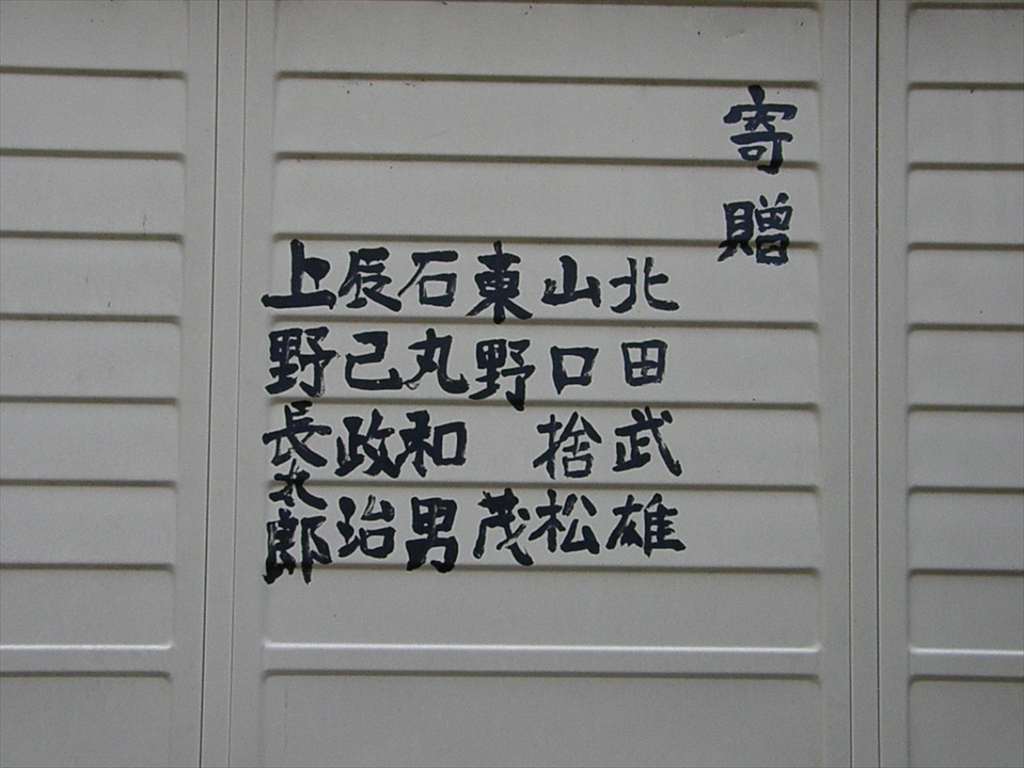 寄贈
北田武雄
山口捨松
東野茂
石丸和男
辰己政治
上野長太郎